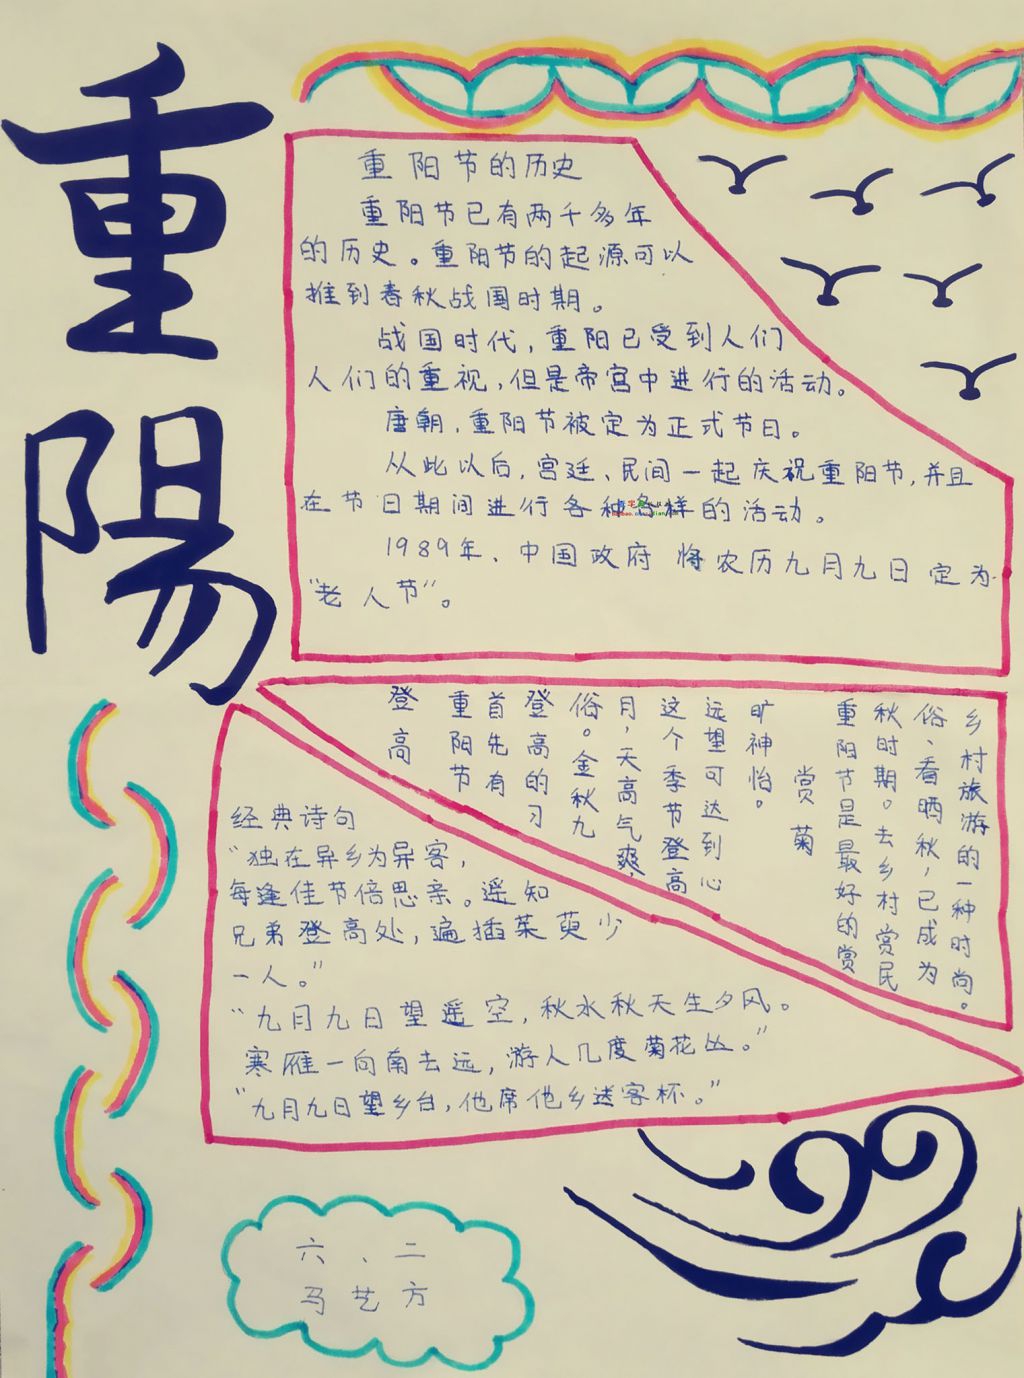 重陽
重阳节的历史
重阳节已有两千多年
的历史。重阳节的起源可以
推到春秋战国时期。
战国时代,重阳已受到人们
人们的重视,但是帝宫中进行的活动。
唐朝,重阳节被定为正式节日。
从此以后,宫廷、民间一起庆祝重阳节,并且
在节日期间进行各种各样的活动。
1989年、中国政府将农历九月九日定为
“老人节”。
登高
重阳节
首先有
登高的习
俗。金秋九
月,天高气爽,
这个季节登高
远望可达到心
旷神怡。
赏菊
重阳节是最好的赏
秋时期。去乡村赏民
俗、看晒秋,已成为
乡村旅游的一种时尚。
经典诗句
“独在异乡为异客,
每逢佳节倍思亲。遥知
兄弟登高处,遍插茱萸少
一人。”
“九月九日望遥空,秋水秋天生夕风。
寒雁一向南去远,游人几度菊花丛。”
“九月九日望乡台,他席他乡送客杯。”
六、二
马艺方